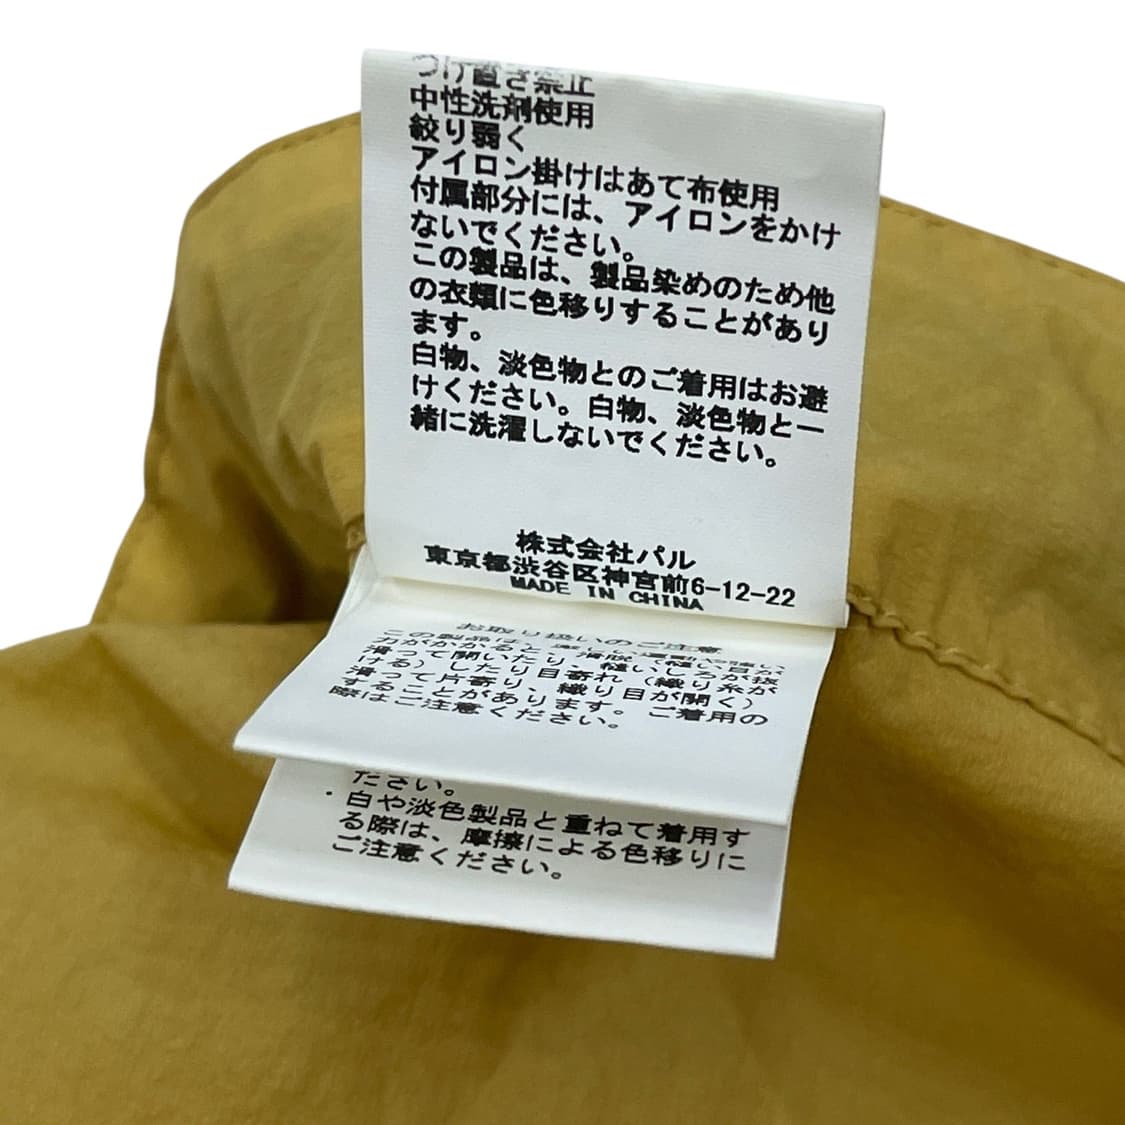 つけ置き禁止
中性洗剤使用
絞り弱く
アイロン掛けはあて布使用
付属部分には、アイロンをかけ
ないでください。
この製品は、製品染めのため他
の衣類に色移りすることがあり
ます。
白物、淡色物とのご着用はお避
けください。白物、淡色物と一
緒に洗濯しないでください。
株式会社パル
東京都渋谷区神宮前6-12-22
MADE IN CHINA
お取り扱いのご注意
この製品は、激しい運動や強い
力がかかると、滑脱(縫い目が
滑って開いたり、縫いしろが抜
ける)したり目寄れ(織り糸が
滑って片寄り、織り目が開く)
することがあります。ご着用の
際はご注意ください。
ださい。
・白や淡色製品と重ねて着用す
る際は、摩擦による色移りに
ご注意ください。